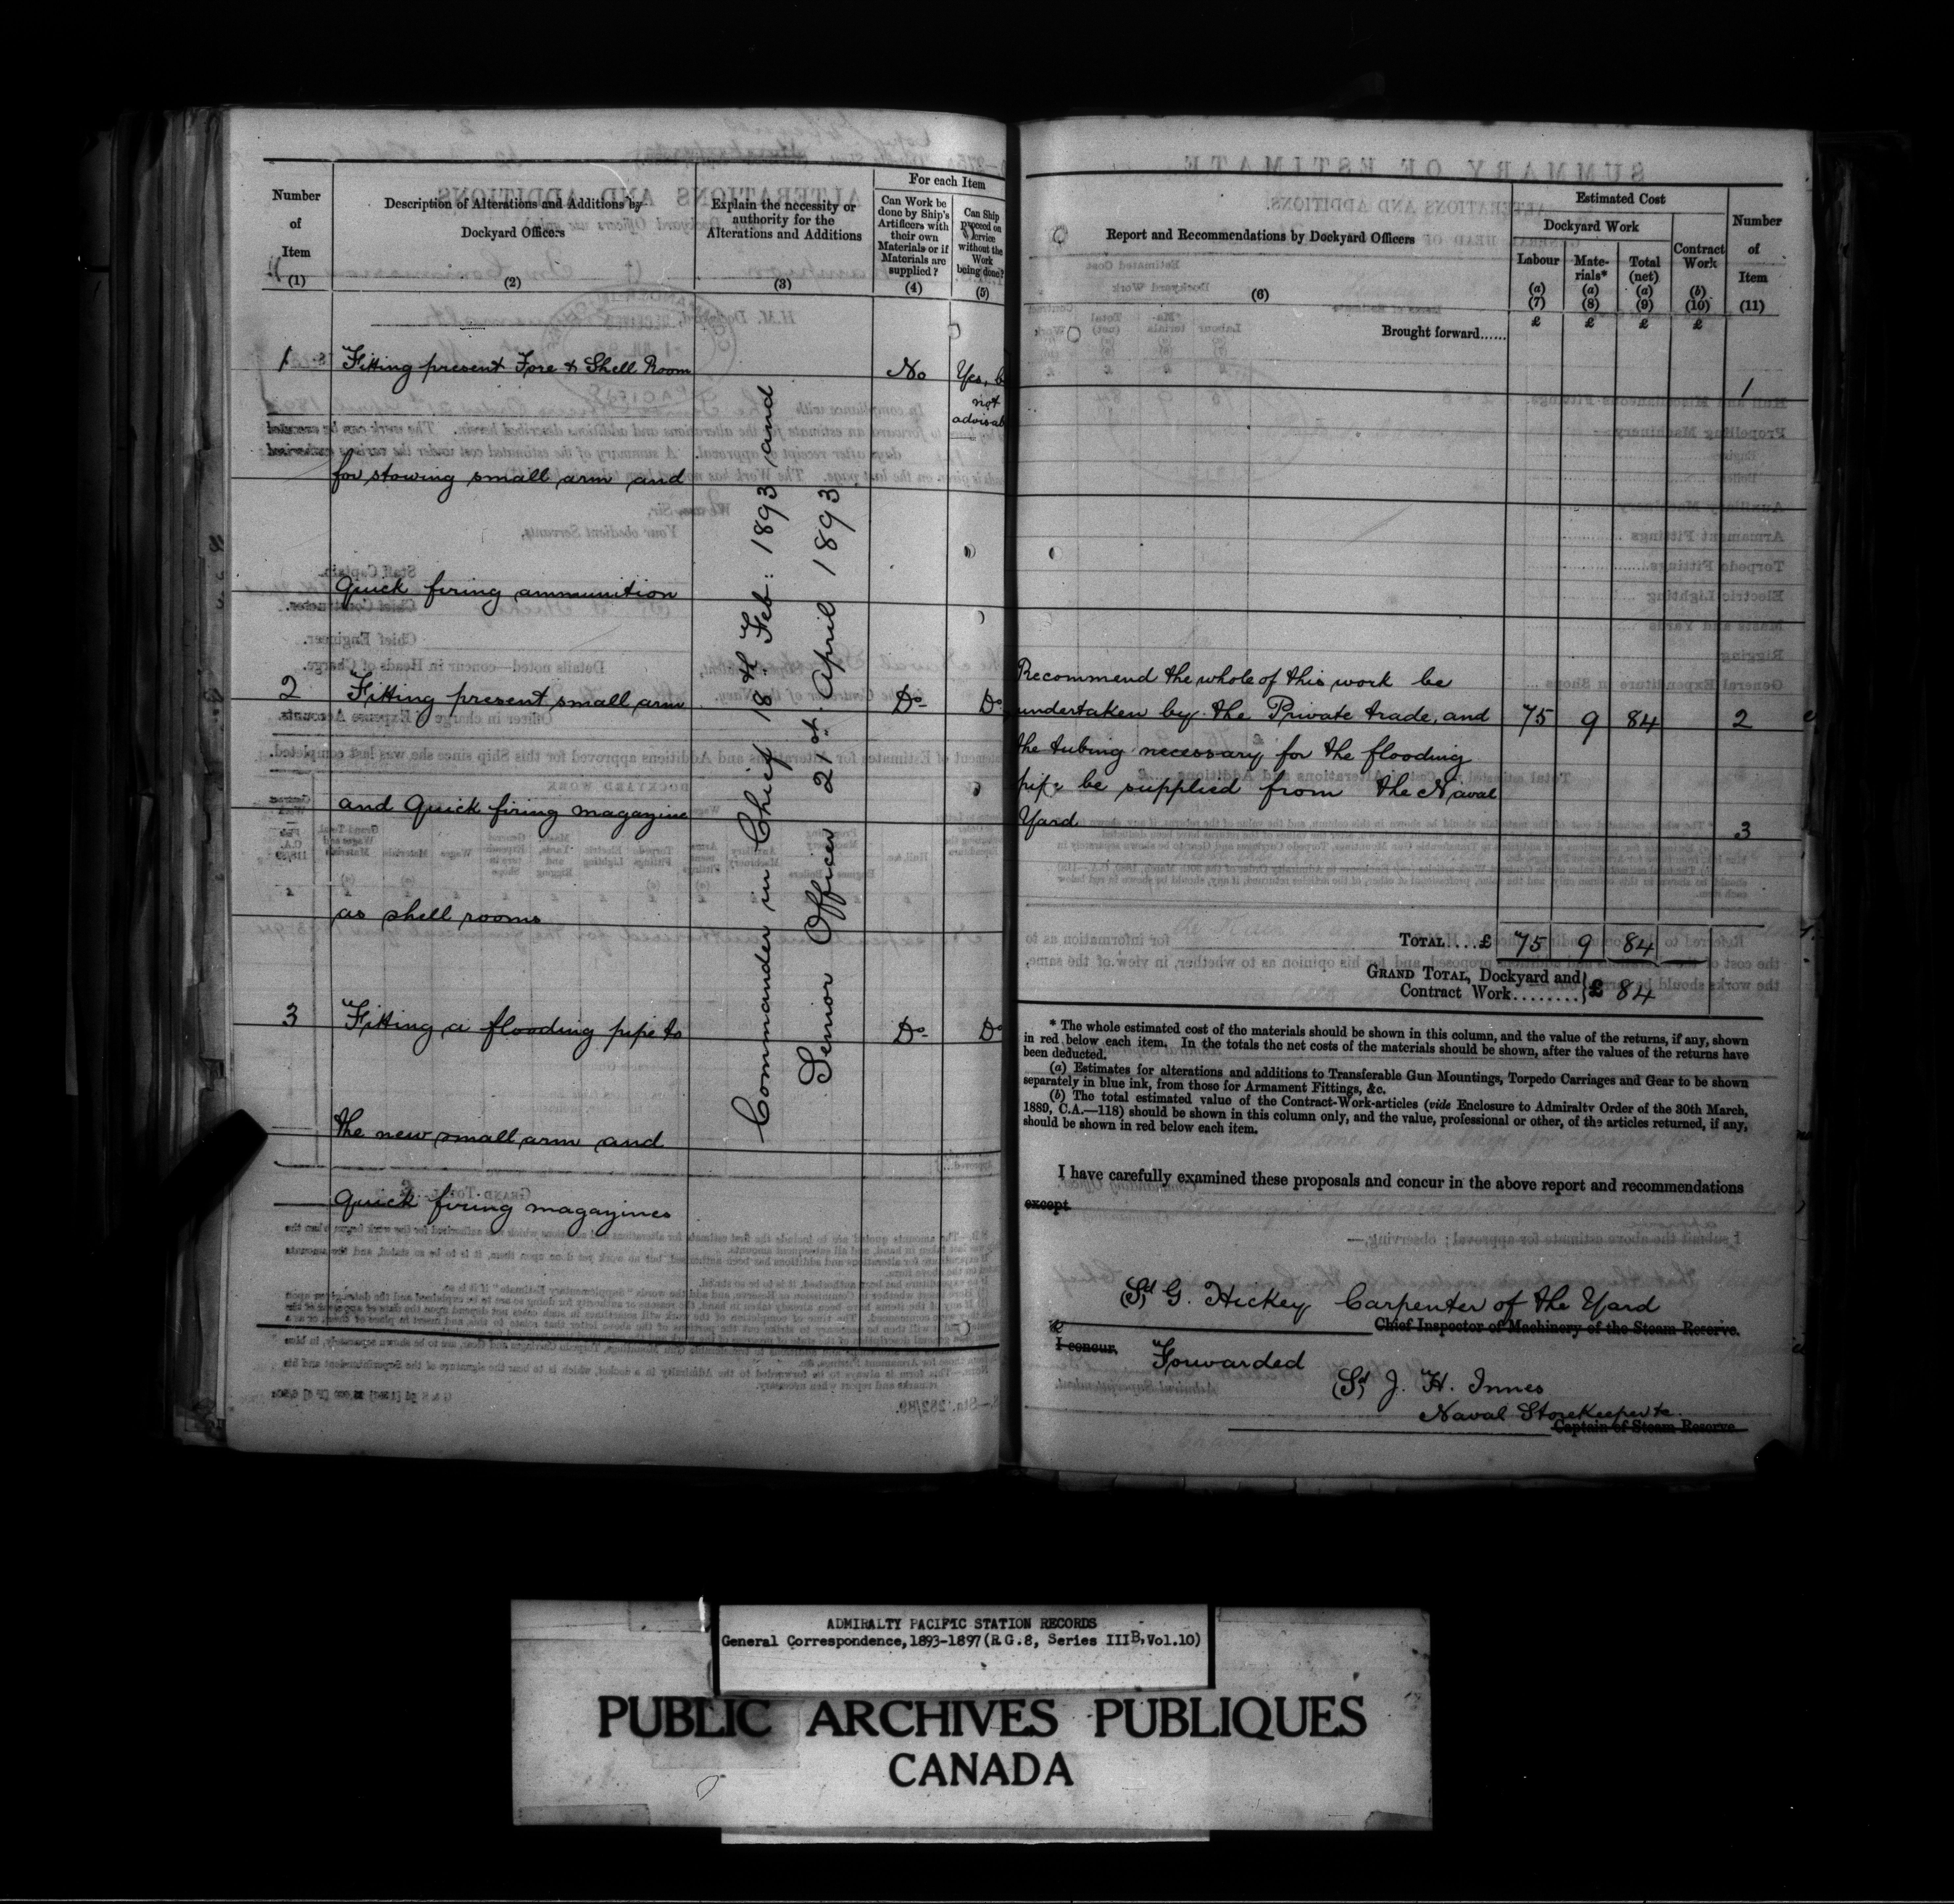 For each Item
Number
of
Item
(1)
Description of Alterations and Additions by
Dockyard Officers
(2)
Explain the necessity or
authority for the
Alterations and Additions
(3)
Can Work be
done by Ship's
Artificers with
their own
Materials or if
Materials are
supplied?
(4)
Can Ship
proceed on
Service
without the
Work
being done?
(5)
1 Fitting present Fore & Shell Room No Yes, b
not
advisab
for stowing small arm and
Quick firing ammunition
2 Fitting present small arm Do- Do
and Quick firing magazine
as shell rooms
3 Fitting a flooding pipe to Do- Do
the new small arm and
Quick firing magazines
Commander in Chief 18th Feb: 1893 and
Senior Officer 21st. April 1893
Report and Recommendations by Dockyard Officers
(6)
Estimated Cost
Dockyard Work
Labour
(a)
(7)
Mate-
rials*
(a)
(8)
Total
(net)
(a)
(9)
Contract
Work
(b)
(10)
Number
of
Item
(11)
Brought forward...... £ £ £ £
1
Recommend the whole of this work be
undertaken by the Private trade, and 75 9 84 2
the tubing necessary for the flooding
pipe be supplied from the Naval
Yard
3
TOTAL....£ 75 9 84
GRAND TOTAL, Dockyard and
Contract Work........ £ 84
* The whole estimated cost of the materials should be shown in this column, and the value of the returns, if any, shown
in red below each item. In the totals the net costs of the materials should be shown, after the values of the returns have
been deducted.
(a) Estimates for alterations and additions to Transferable Gun Mountings, Torpedo Carriages and Gear to be shown
separately in blue ink, from those for Armament Fittings, &c.
(b) The total estimated value of the Contract-Work-articles (vide Enclosure to Admiralty Order of the 30th March,
1889, C.A.—118) should be shown in this column only, and the value, professional or other, of the articles returned, if any,
should be shown in red below each item.
I have carefully examined these proposals and concur in the above report and recommendations
except
(Sd) G. Hickey Carpenter of the Yard
Chief Inspector of Machinery of the Steam Reserve.
I concur,
Forwarded
(Sd) J. H. Innes
Naval Storekeeper &c.
Captain of Steam Reserve
ADMIRALTY PACIFIC STATION RECORDS
General Correspondence, 1893-1897 (R.G.8, Series IIIB, Vol.10)
PUBLIC ARCHIVES PUBLIQUES
CANADA